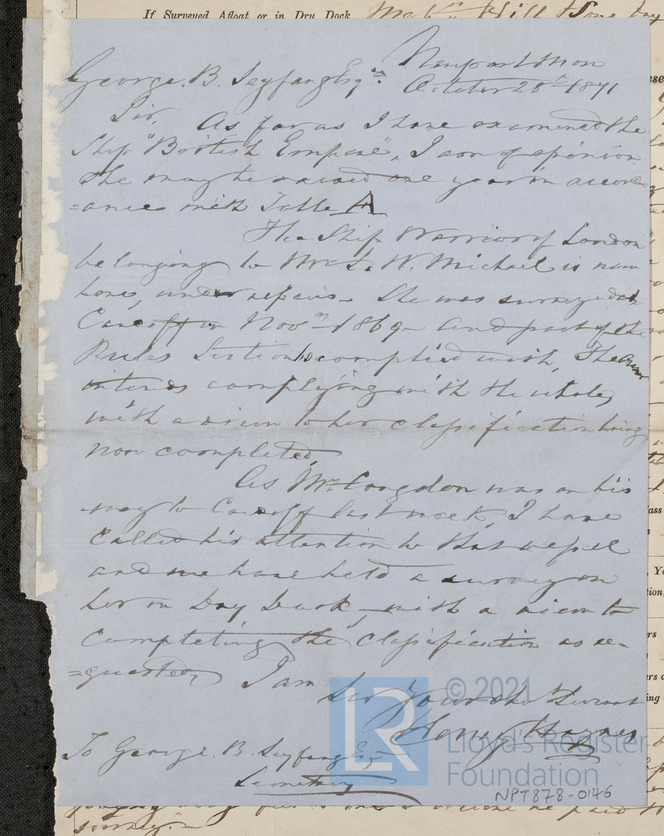 If Surveyed Afloat or in Dry Dock
Newport Mon
George. B. Seyfang Esqre. October 28th 1871
Sir, As far as I have examined the
Ship "British Empire", I am of opinion
She may be raised one year in accord
=ance with Table A
The Ship Warrior of London
belonging to Mr S. W. Michael is now
here, under repairs. She was surveyed at
Cardiff in Novr 1869 and part of the
Rules Section complied with, The owner
intends complying with the whole,
with a view to her classification being
now completed,
As Mr Congdon was on his
way to Cardiff last week, I have
called his attention to that vessel
and we have held a survey on
her in Dry Dock, with a view to
completing the classification as re-
=quested, I am
Sir Your obdt Servant
Henry Haynes
To George. B. Seyfang Esqr
Secretary
LR © 2021
Lloyd's Register
Foundation
NPT878-0146
survey.